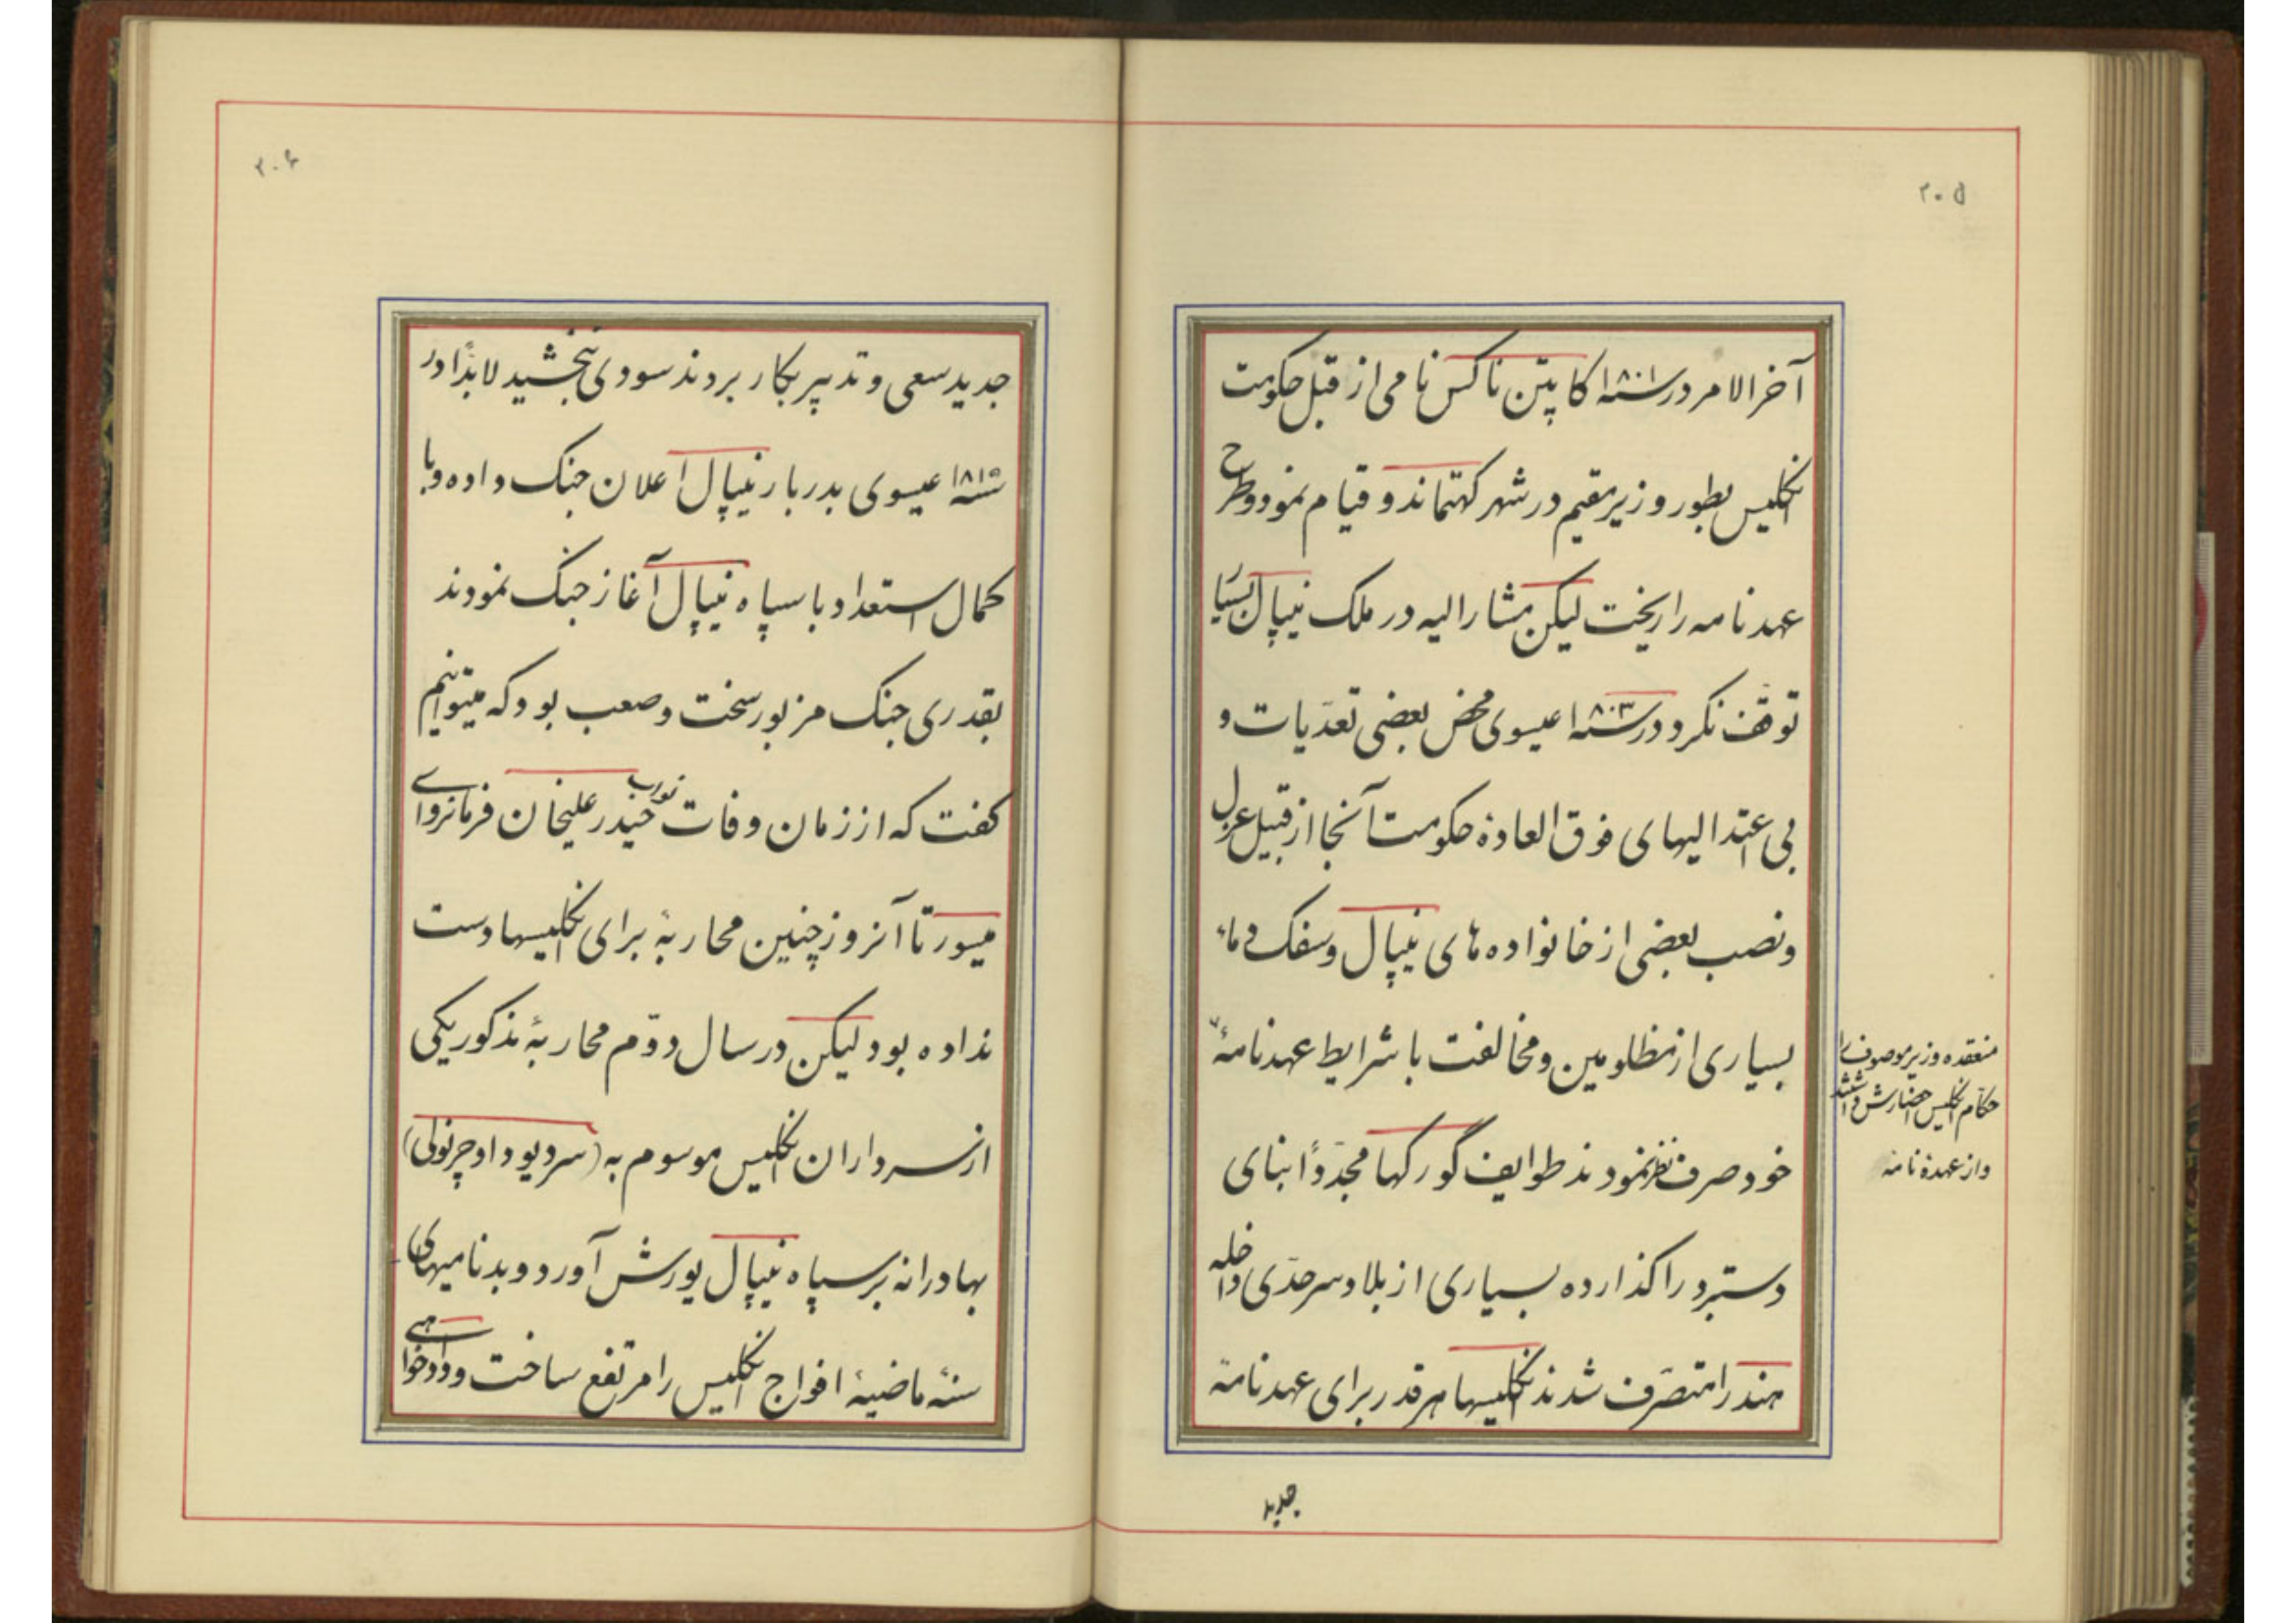 ۲۰۵
آخر الامر در سنه ۱۸۰۱ کاپیتن ناکس نامی از قبل حکومت
انگلیس بطور وزیر مقیم در شهر کهتماندو قیام نمود و طرح
عهدنامه را ریخت لیکن مشارالیه در ملک نیپال بسیا
توقف نکرد و در سنه ۱۸۰۳ عیسوی محض بعضی تعدّیات و
بی اعتدالیهای فوق العادهٔ حکومت آنجا از قبیل عزل
و نصب بعضی از خانواده های نیپال و سفک دماء
بسیاری از مظلومین و مخالفت با شرایط عهدنامهٔ
منعقده وزیر موصوف را
حکام انگلیس احضارش داشتند
و از عهدهٔ نامه
خود صرف نظر نمودند طوایف گورکها مجدّداً بنای
دستبرد را کذارده بسیاری از بلاد سرحدّی داخله
هند را متصرّف شدند انکلیسها هر قدر برای عهدنامهٔ
جدید
۲۰۶
جدید سعی و تدبیر بکار بردند سودی نبخشید لابدّاً در
سنه ۱۸۱۵ عیسوی بدربار نیپال اعلان جنک داده و با
کمال استعداد با سپاه نیپال آغاز جنک نمودند
بقدری جنک مزبور سخت و صعب بود که میتوانیم
کفت که از زمان وفات نواب حیدر علیخان فرمانروای
میسور تا آنروز چنین محاربهٔ برای انکلیسها دست
نداده بود لیکن در سال دوّم محاربهٔ مذکور یکی
از سرداران انکلیس موسوم به (سر دیوداوچرنولی)
بهادرانه بر سپاه نیپال یورش آورد و بدنامیهای
سنهٔ ماضیهٔ افواج انکلیس را مرتفع ساخت و دادخواهی